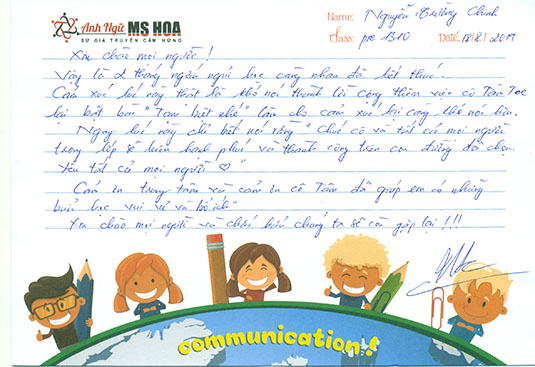 Anh Ngữ MS HOA
SỨ GIẢ TRUYỀN CẢM HỨNG
Name: Nguyễn Trường Chinh
Class: pre B10 Date: 18/8/2017
Xin chào mọi người!
Vậy là 2 tháng ngắn ngủi học cùng nhau đã kết thúc.
Cảm xúc lúc này thật là khó nói thành lời cộng thêm việc cô Tâm
lại bật bài "Tạm biệt nhé" làm cho cảm xúc lại càng khó nói hơn.
Ngay lúc này chỉ biết nói rằng "Chúc cô và tất cả mọi người
trong lớp sẽ luôn hạnh phúc và thành công trên con đường đã chọn.
Yêu tất cả mọi người ♡"
Cảm ơn trung tâm và cảm ơn cô Tâm đã giúp em có những
buổi học vui vẻ và bổ ích"
Xin chào mọi người và chúng ta sẽ còn gặp lại!!!
communication!